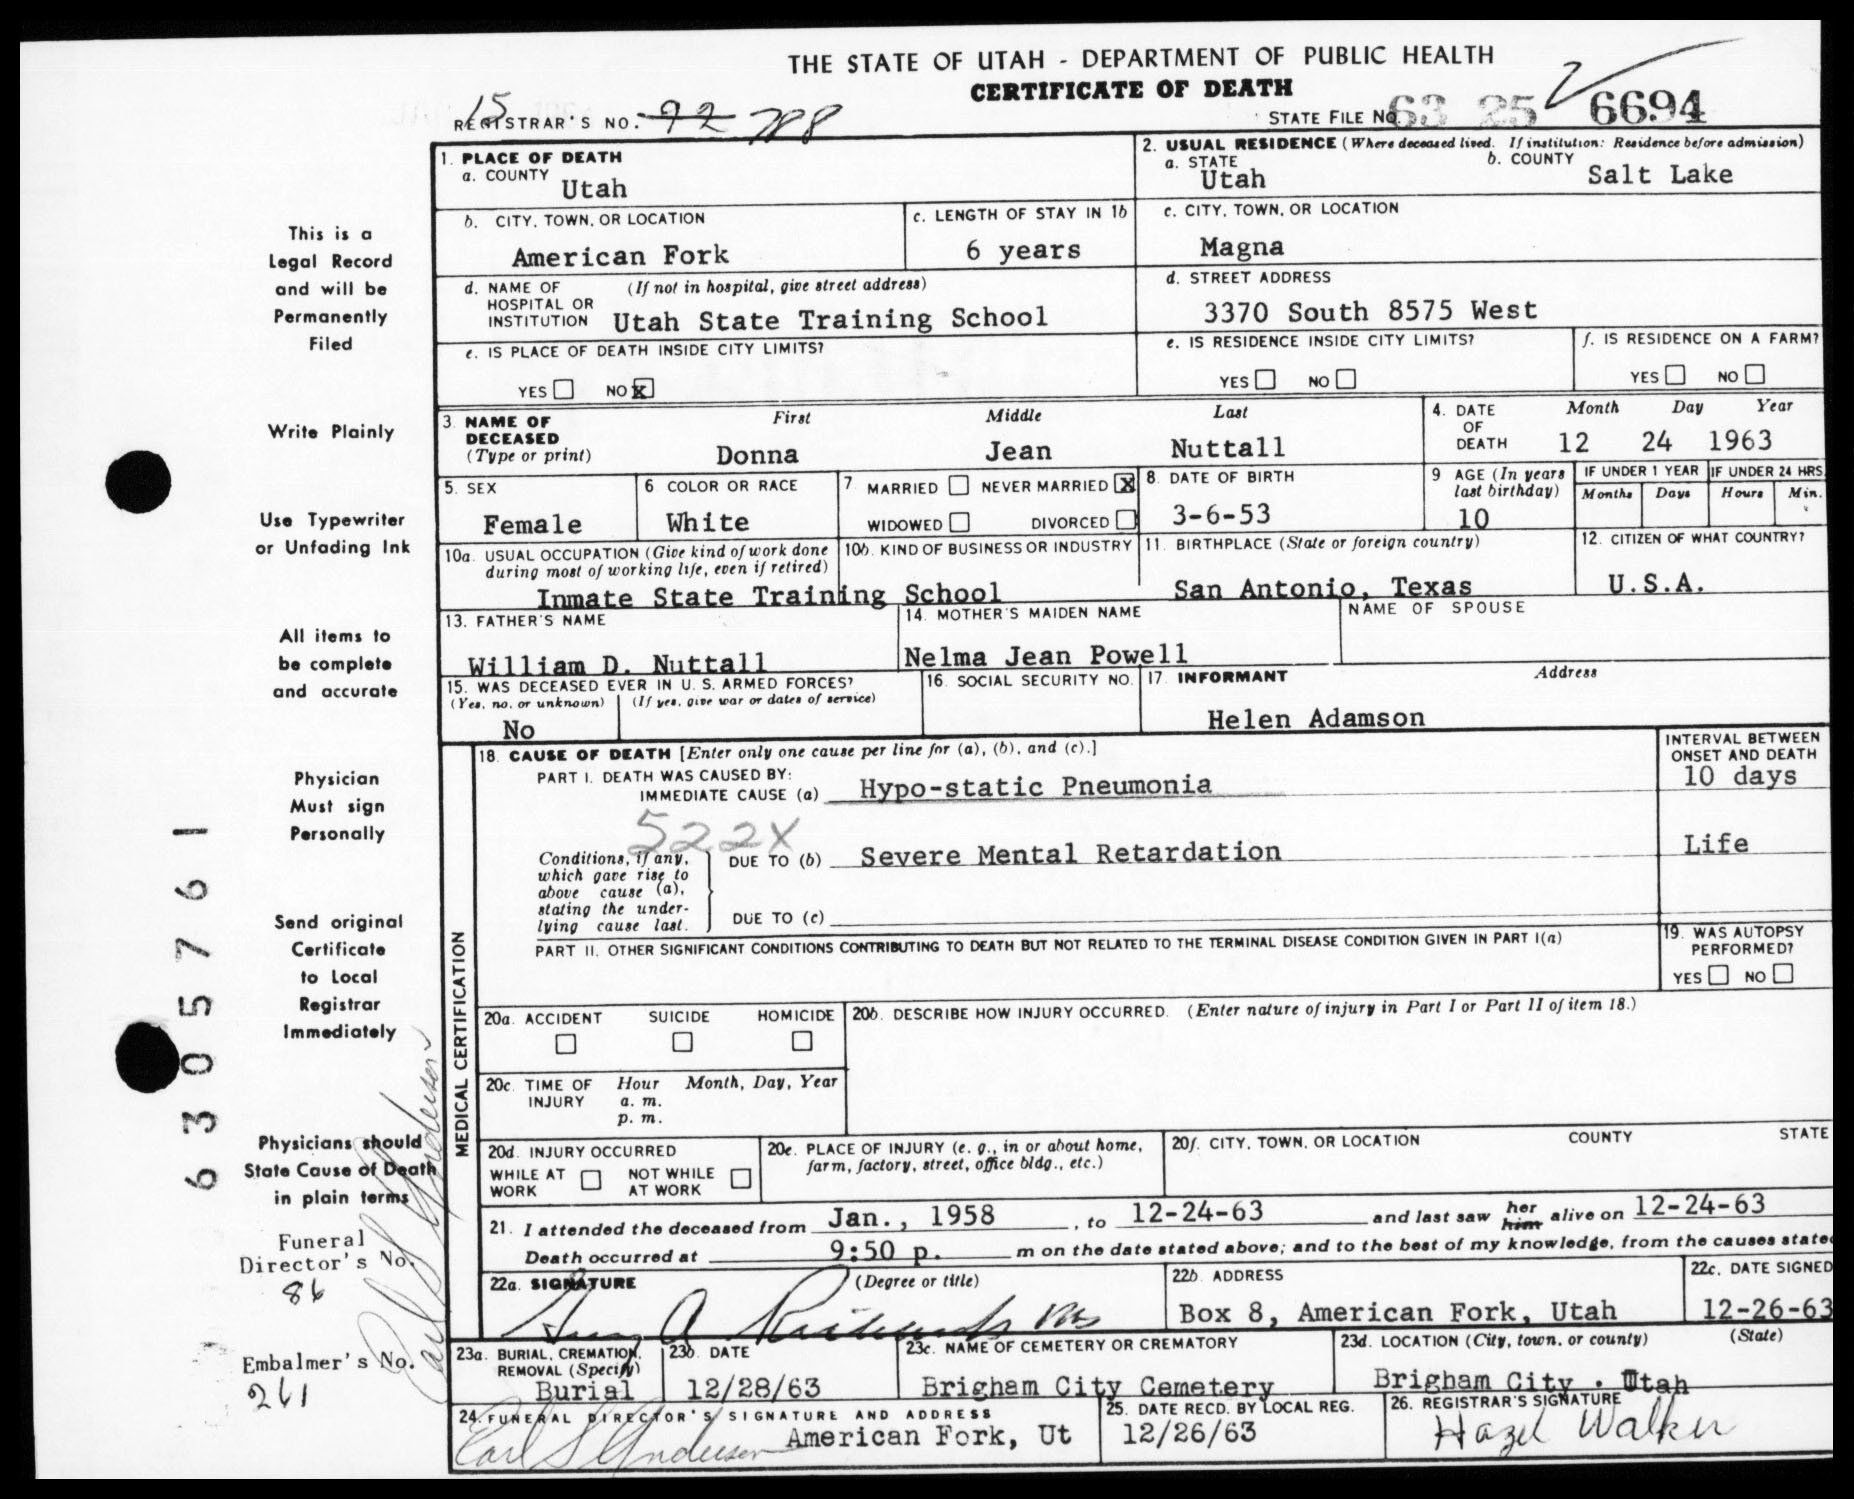 THE STATE OF UTAH - DEPARTMENT OF PUBLIC HEALTH
CERTIFICATE OF DEATH
15
REGISTRAR'S NO. 92 788
STATE FILE NO. 63 25 6694
1. PLACE OF DEATH
a. COUNTY Utah
2. USUAL RESIDENCE (Where deceased lived. If institution: Residence before admission)
a. STATE Utah b. COUNTY Salt Lake
b. CITY, TOWN, OR LOCATION American Fork
c. LENGTH OF STAY IN 1b 6 years
c. CITY, TOWN, OR LOCATION Magna
d. NAME OF HOSPITAL OR INSTITUTION (If not in hospital, give street address) Utah State Training School
d. STREET ADDRESS 3370 South 8575 West
e. IS PLACE OF DEATH INSIDE CITY LIMITS?
YES NO X
e. IS RESIDENCE INSIDE CITY LIMITS?
YES NO
f. IS RESIDENCE ON A FARM?
YES NO
3. NAME OF DECEASED (Type or print)
First Middle Last
Donna Jean Nuttall
4. DATE OF DEATH Month Day Year
12 24 1963
5. SEX Female
6 COLOR OR RACE White
7 MARRIED NEVER MARRIED X
WIDOWED DIVORCED
8. DATE OF BIRTH 3-6-53
9 AGE (In years last birthday) 10
IF UNDER 1 YEAR Months Days
IF UNDER 24 HRS. Hours Min.
10a. USUAL OCCUPATION (Give kind of work done during most of working life, even if retired)
10b. KIND OF BUSINESS OR INDUSTRY
Inmate State Training School
11. BIRTHPLACE (State or foreign country) San Antonio, Texas
12. CITIZEN OF WHAT COUNTRY? U.S.A.
13. FATHER'S NAME William D. Nuttall
14. MOTHER'S MAIDEN NAME Nelma Jean Powell
NAME OF SPOUSE
15. WAS DECEASED EVER IN U.S. ARMED FORCES?
(Yes, no, or unknown) (If yes, give war or dates of service)
No
16. SOCIAL SECURITY NO.
17. INFORMANT Address
Helen Adamson
MEDICAL CERTIFICATION
18. CAUSE OF DEATH [Enter only one cause per line for (a), (b), and (c).]
INTERVAL BETWEEN ONSET AND DEATH
PART I. DEATH WAS CAUSED BY:
IMMEDIATE CAUSE (a) Hypo-static Pneumonia 10 days
522X
Conditions, if any, which gave rise to above cause (a), stating the underlying cause last.
DUE TO (b) Severe Mental Retardation Life
DUE TO (c)
PART II. OTHER SIGNIFICANT CONDITIONS CONTRIBUTING TO DEATH BUT NOT RELATED TO THE TERMINAL DISEASE CONDITION GIVEN IN PART I(a)
19. WAS AUTOPSY PERFORMED?
YES NO
20a. ACCIDENT SUICIDE HOMICIDE
20b. DESCRIBE HOW INJURY OCCURRED. (Enter nature of injury in Part I or Part II of item 18.)
20c. TIME OF INJURY Hour Month, Day, Year
a. m.
p. m.
20d. INJURY OCCURRED
WHILE AT WORK NOT WHILE AT WORK
20e. PLACE OF INJURY (e. g., in or about home, farm, factory, street, office bldg., etc.)
20f. CITY, TOWN, OR LOCATION COUNTY STATE
21. I attended the deceased from Jan., 1958, to 12-24-63 and last saw her him alive on 12-24-63
Death occurred at 9:50 p. m on the date stated above; and to the best of my knowledge, from the causes stated
22a. SIGNATURE (Degree or title)
22b. ADDRESS Box 8, American Fork, Utah
22c. DATE SIGNED 12-26-63
23a. BURIAL, CREMATION, REMOVAL (Specify) Burial
23b. DATE 12/28/63
23c. NAME OF CEMETERY OR CREMATORY Brigham City Cemetery
23d. LOCATION (City, town, or county) (State)
Brigham City. Utah
24. FUNERAL DIRECTOR'S SIGNATURE AND ADDRESS
Earl S Anderson American Fork, Ut
25. DATE RECD. BY LOCAL REG. 12/26/63
26. REGISTRAR'S SIGNATURE
Hazel Walker
This is a
Legal Record
and will be
Permanently
Filed
Write Plainly
Use Typewriter
or Unfading Ink
All items to
be complete
and accurate
Physician
Must sign
Personally
Send original
Certificate
to Local
Registrar
Immediately
Physicians should
State Cause of Death
in plain terms
Funeral
Director's No.
86
Embalmer's No.
261
Earl S Anderson
6305761